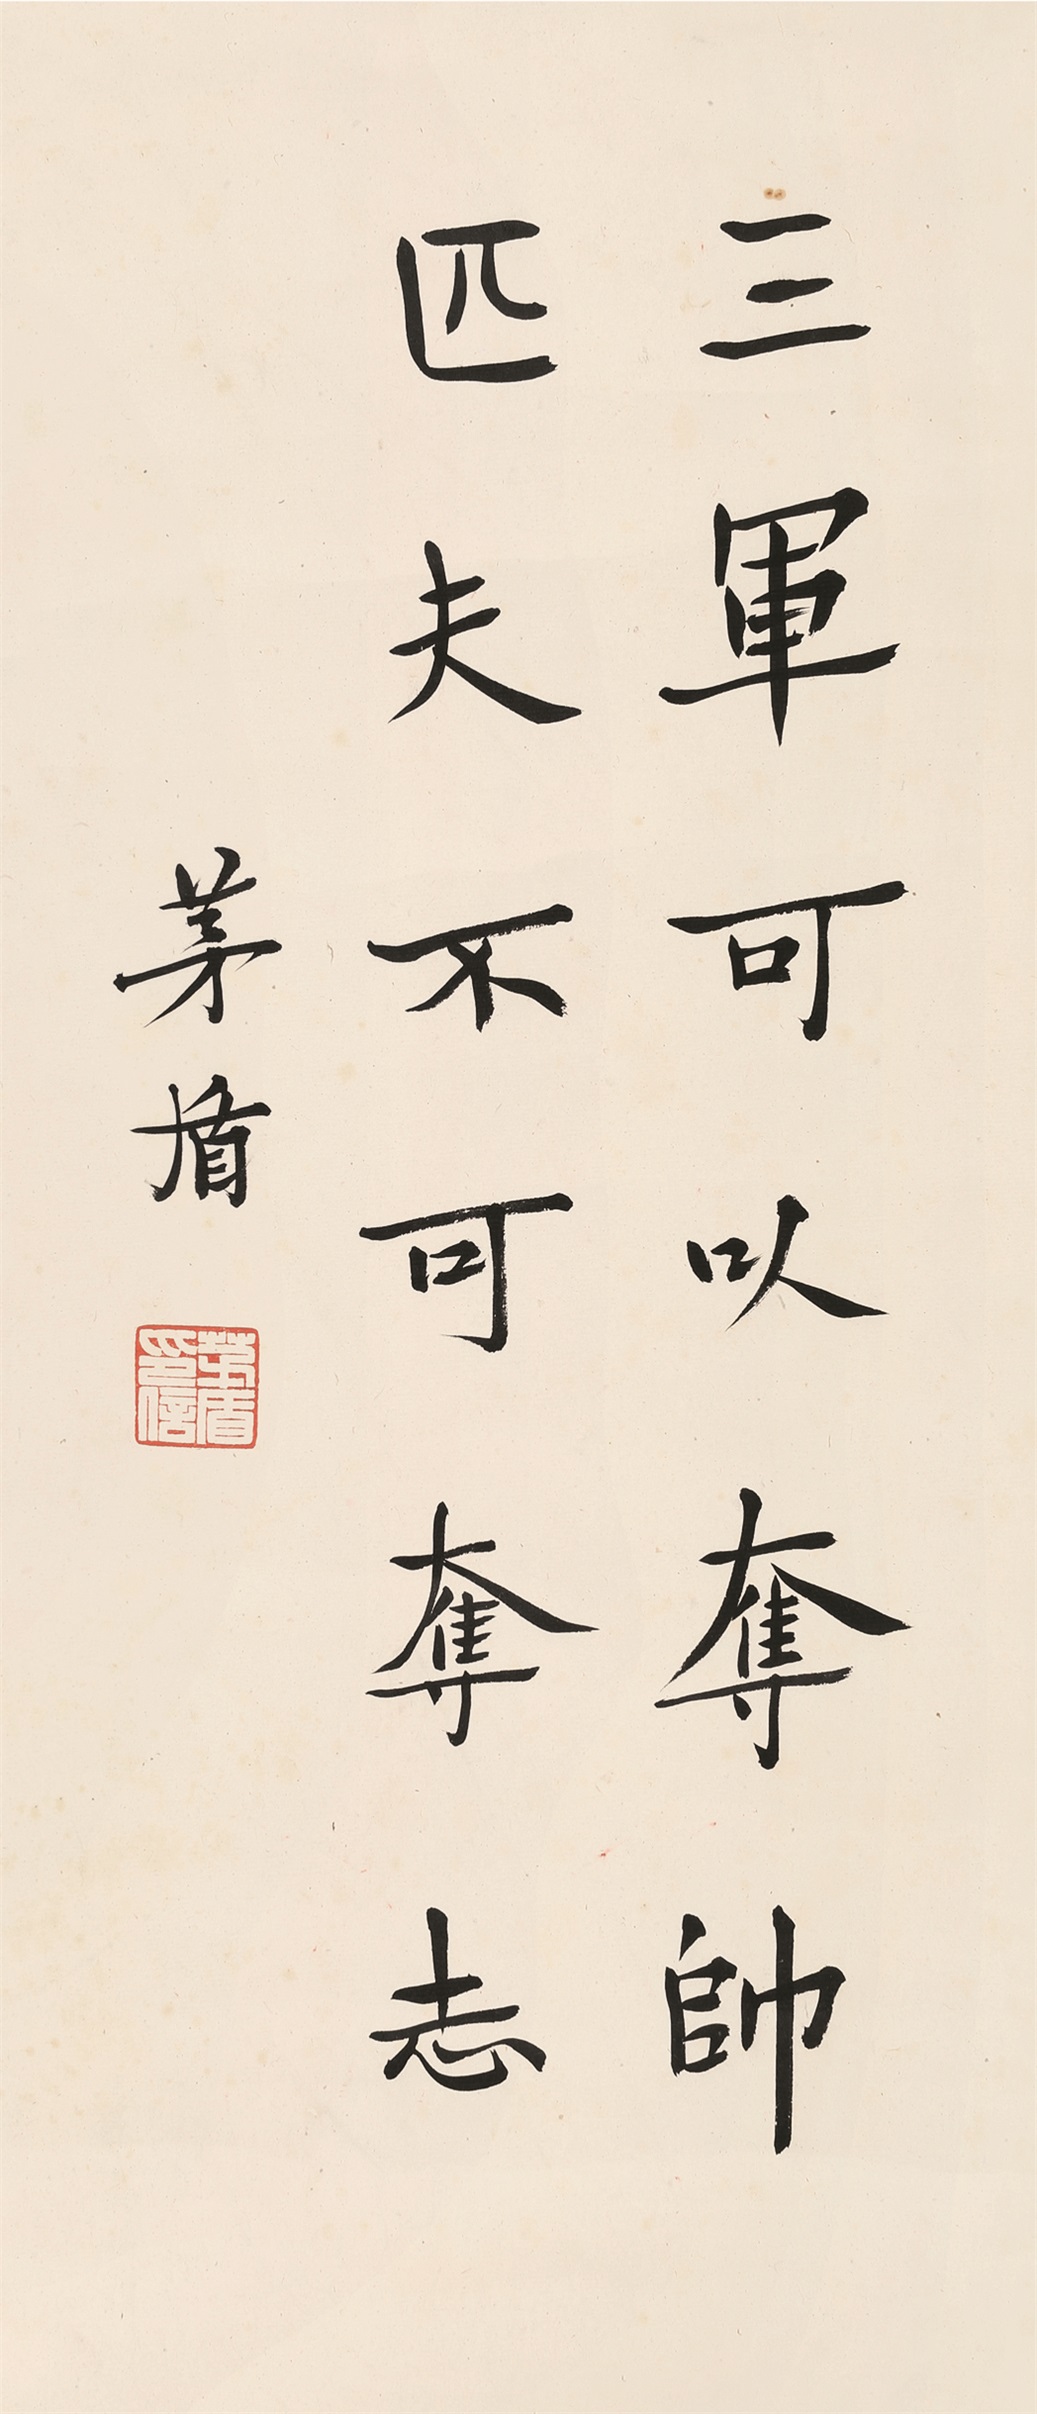 三軍可以奪帥
匹夫不可奪志
茅盾
茅盾
印信